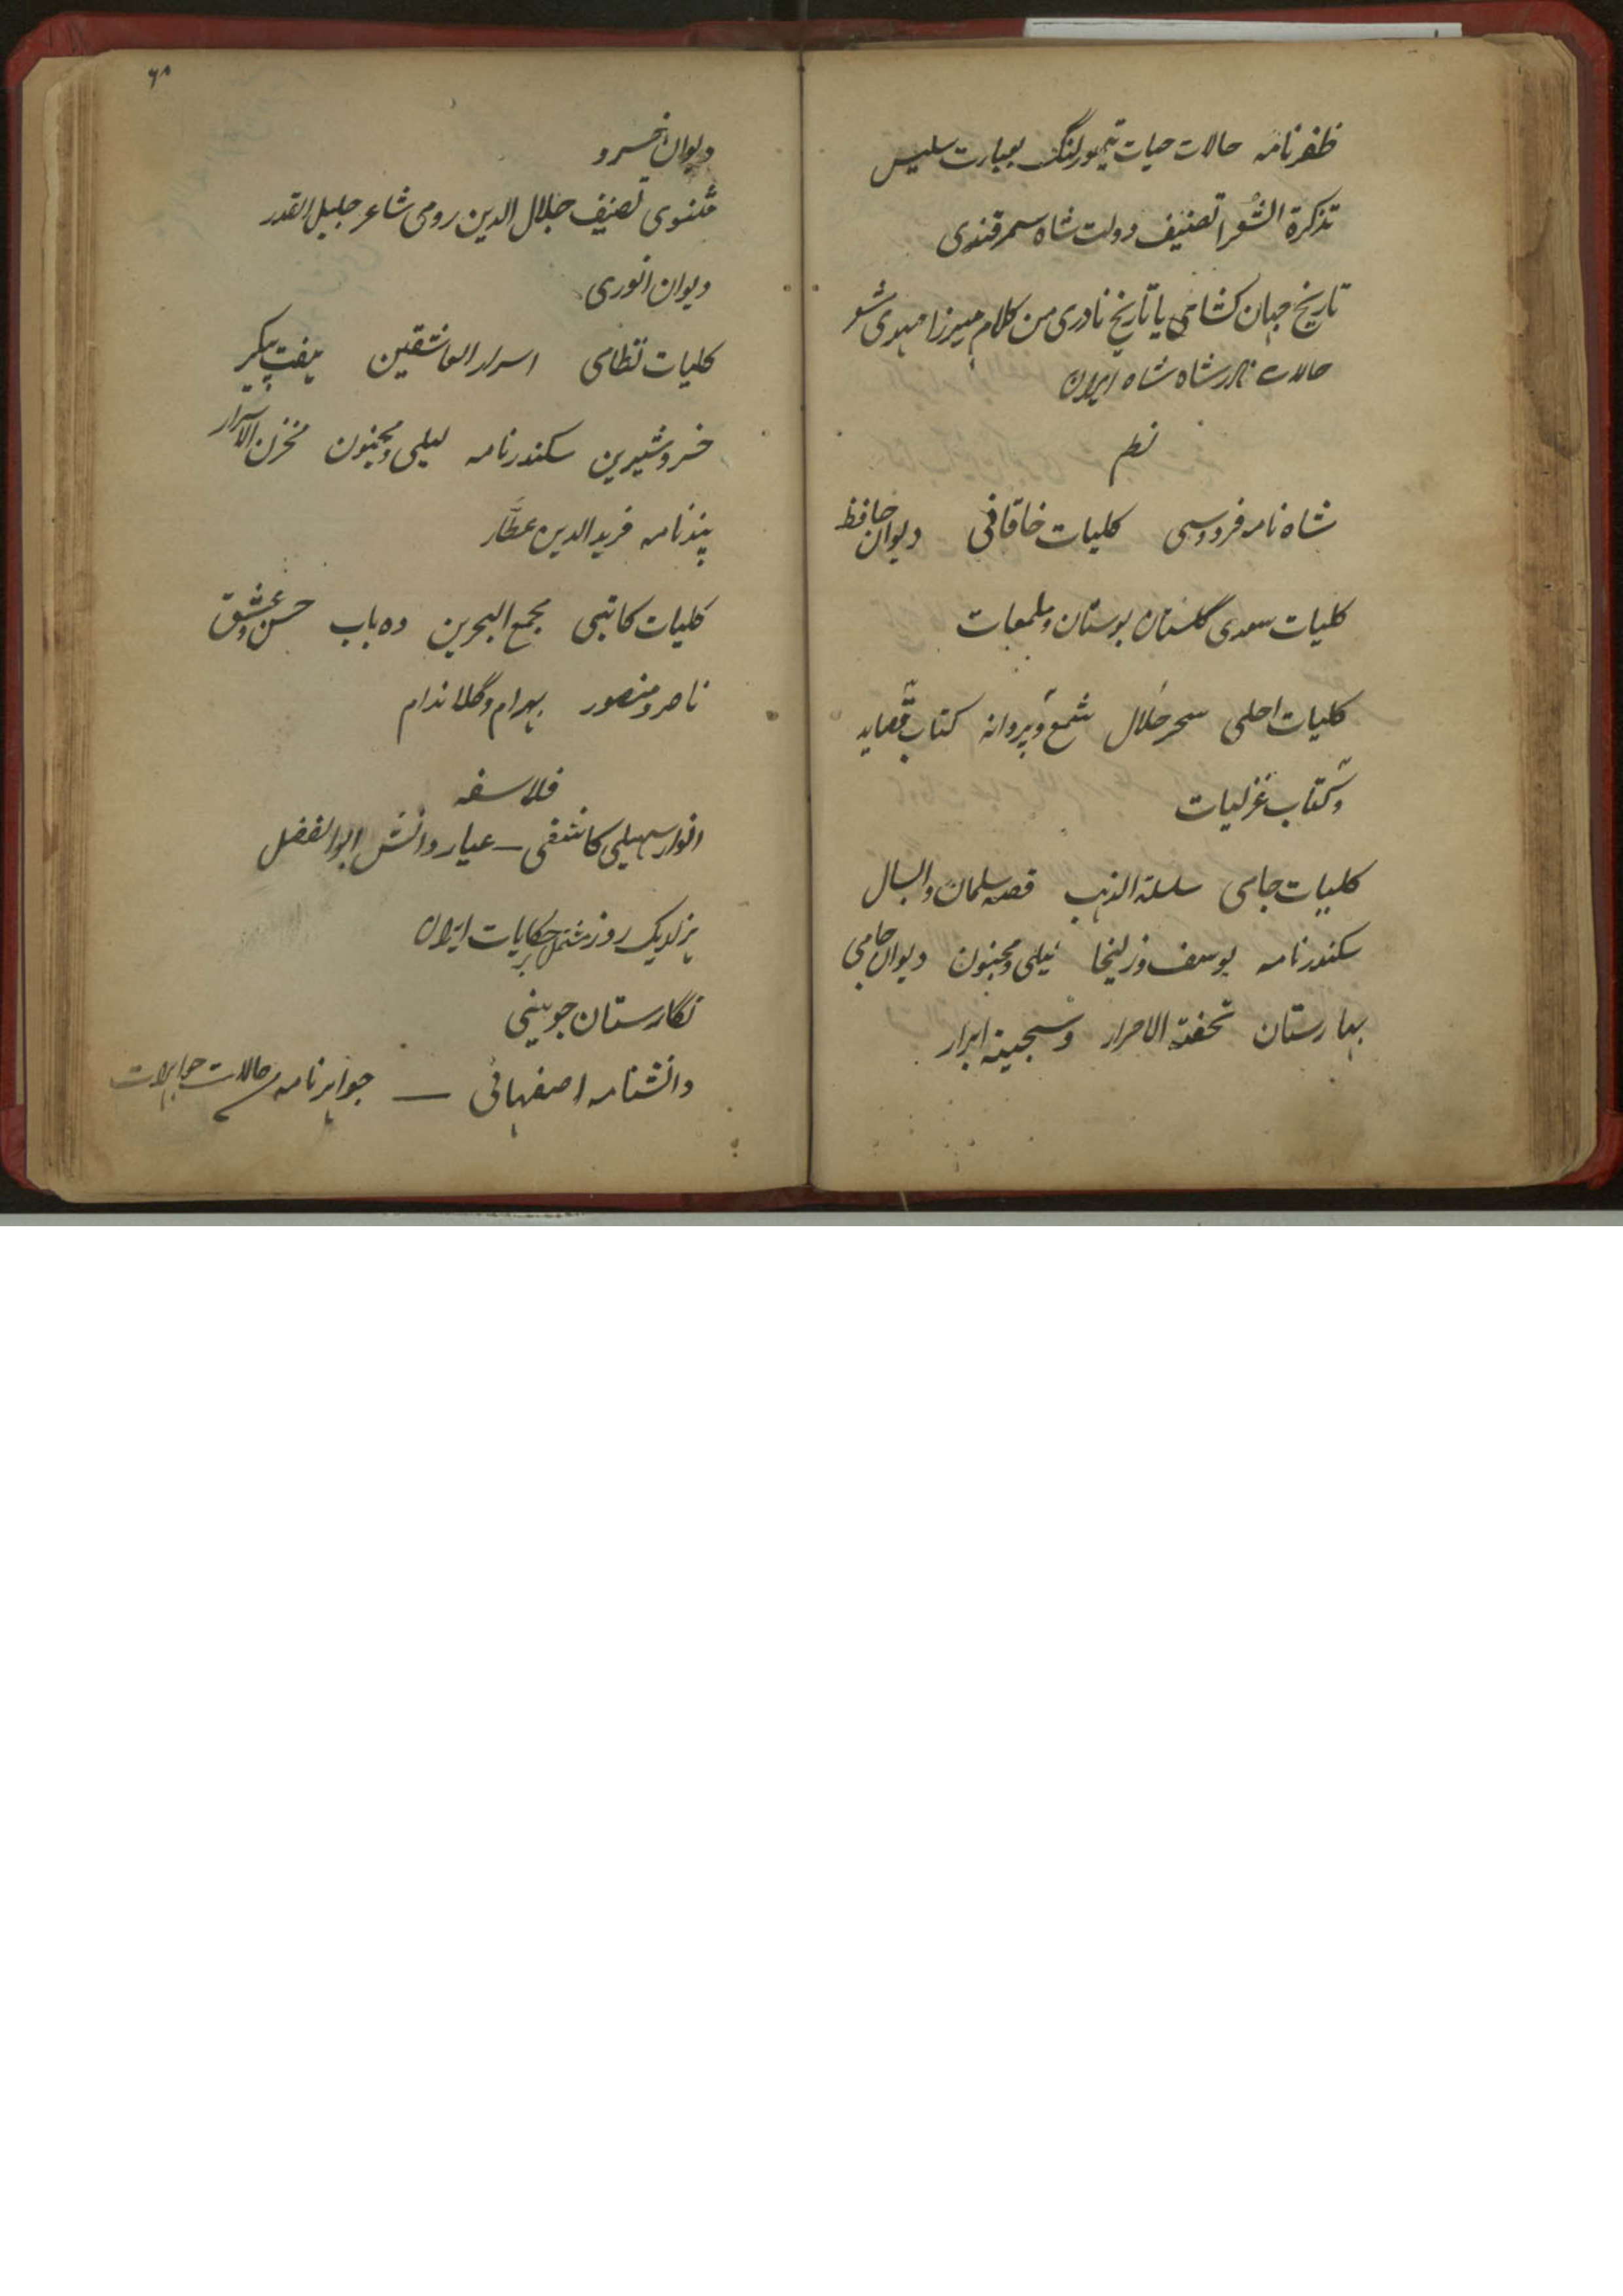 ظفرنامہ حالات حیات تیمورلنگ بعبارت سلیس
تذکرۃ الشعرا تصنیف دولت شاہ سمرقندی
تاریخ جہان کشای یا تاریخ نادری من کلام میرزا مہدی
حالات نادر شاہ شاہ ایران
نظم
شاہ نامہ فردوسی کلیات خاقانی دیوان حافظ
کلیات سعدی گلستان بوستان و ملمعات
کلیات احلی سحر حلال شمع و پروانہ کتاب قصاید
و کتاب غزلیات
کلیات جامی سلسلۃ الذہب قصہ سلمان و ابسال
سکندرنامہ یوسف و زلیخا لیلی و مجنون دیوان جامی
بہارستان تحفۃ الاحرار و سبحینہ ابرار
۶۸
دیوان خسرو
مثنوی تصنیف جلال الدین رومی شاعر جلیل القدر
دیوان انوری
کلیات نظامی اسرار العاشقین ہفت پیکر
خسرو شیرین سکندرنامہ لیلی و مجنون مخزن الاسرار
پندنامہ فرید الدین عطّار
کلیات کاتبی مجمع البحرین دہ باب حسن و عشق
ناصر و منصور بہرام و گل اندام
فلاسفہ
انوار سہیلی کاشفی — عیار دانش ابوالفضل
ہزار یک روز مشتمل بر حکایات ایران
نگارستان جوینی
دانشنامہ اصفہانی — جواہر نامہ حالات جواہرات